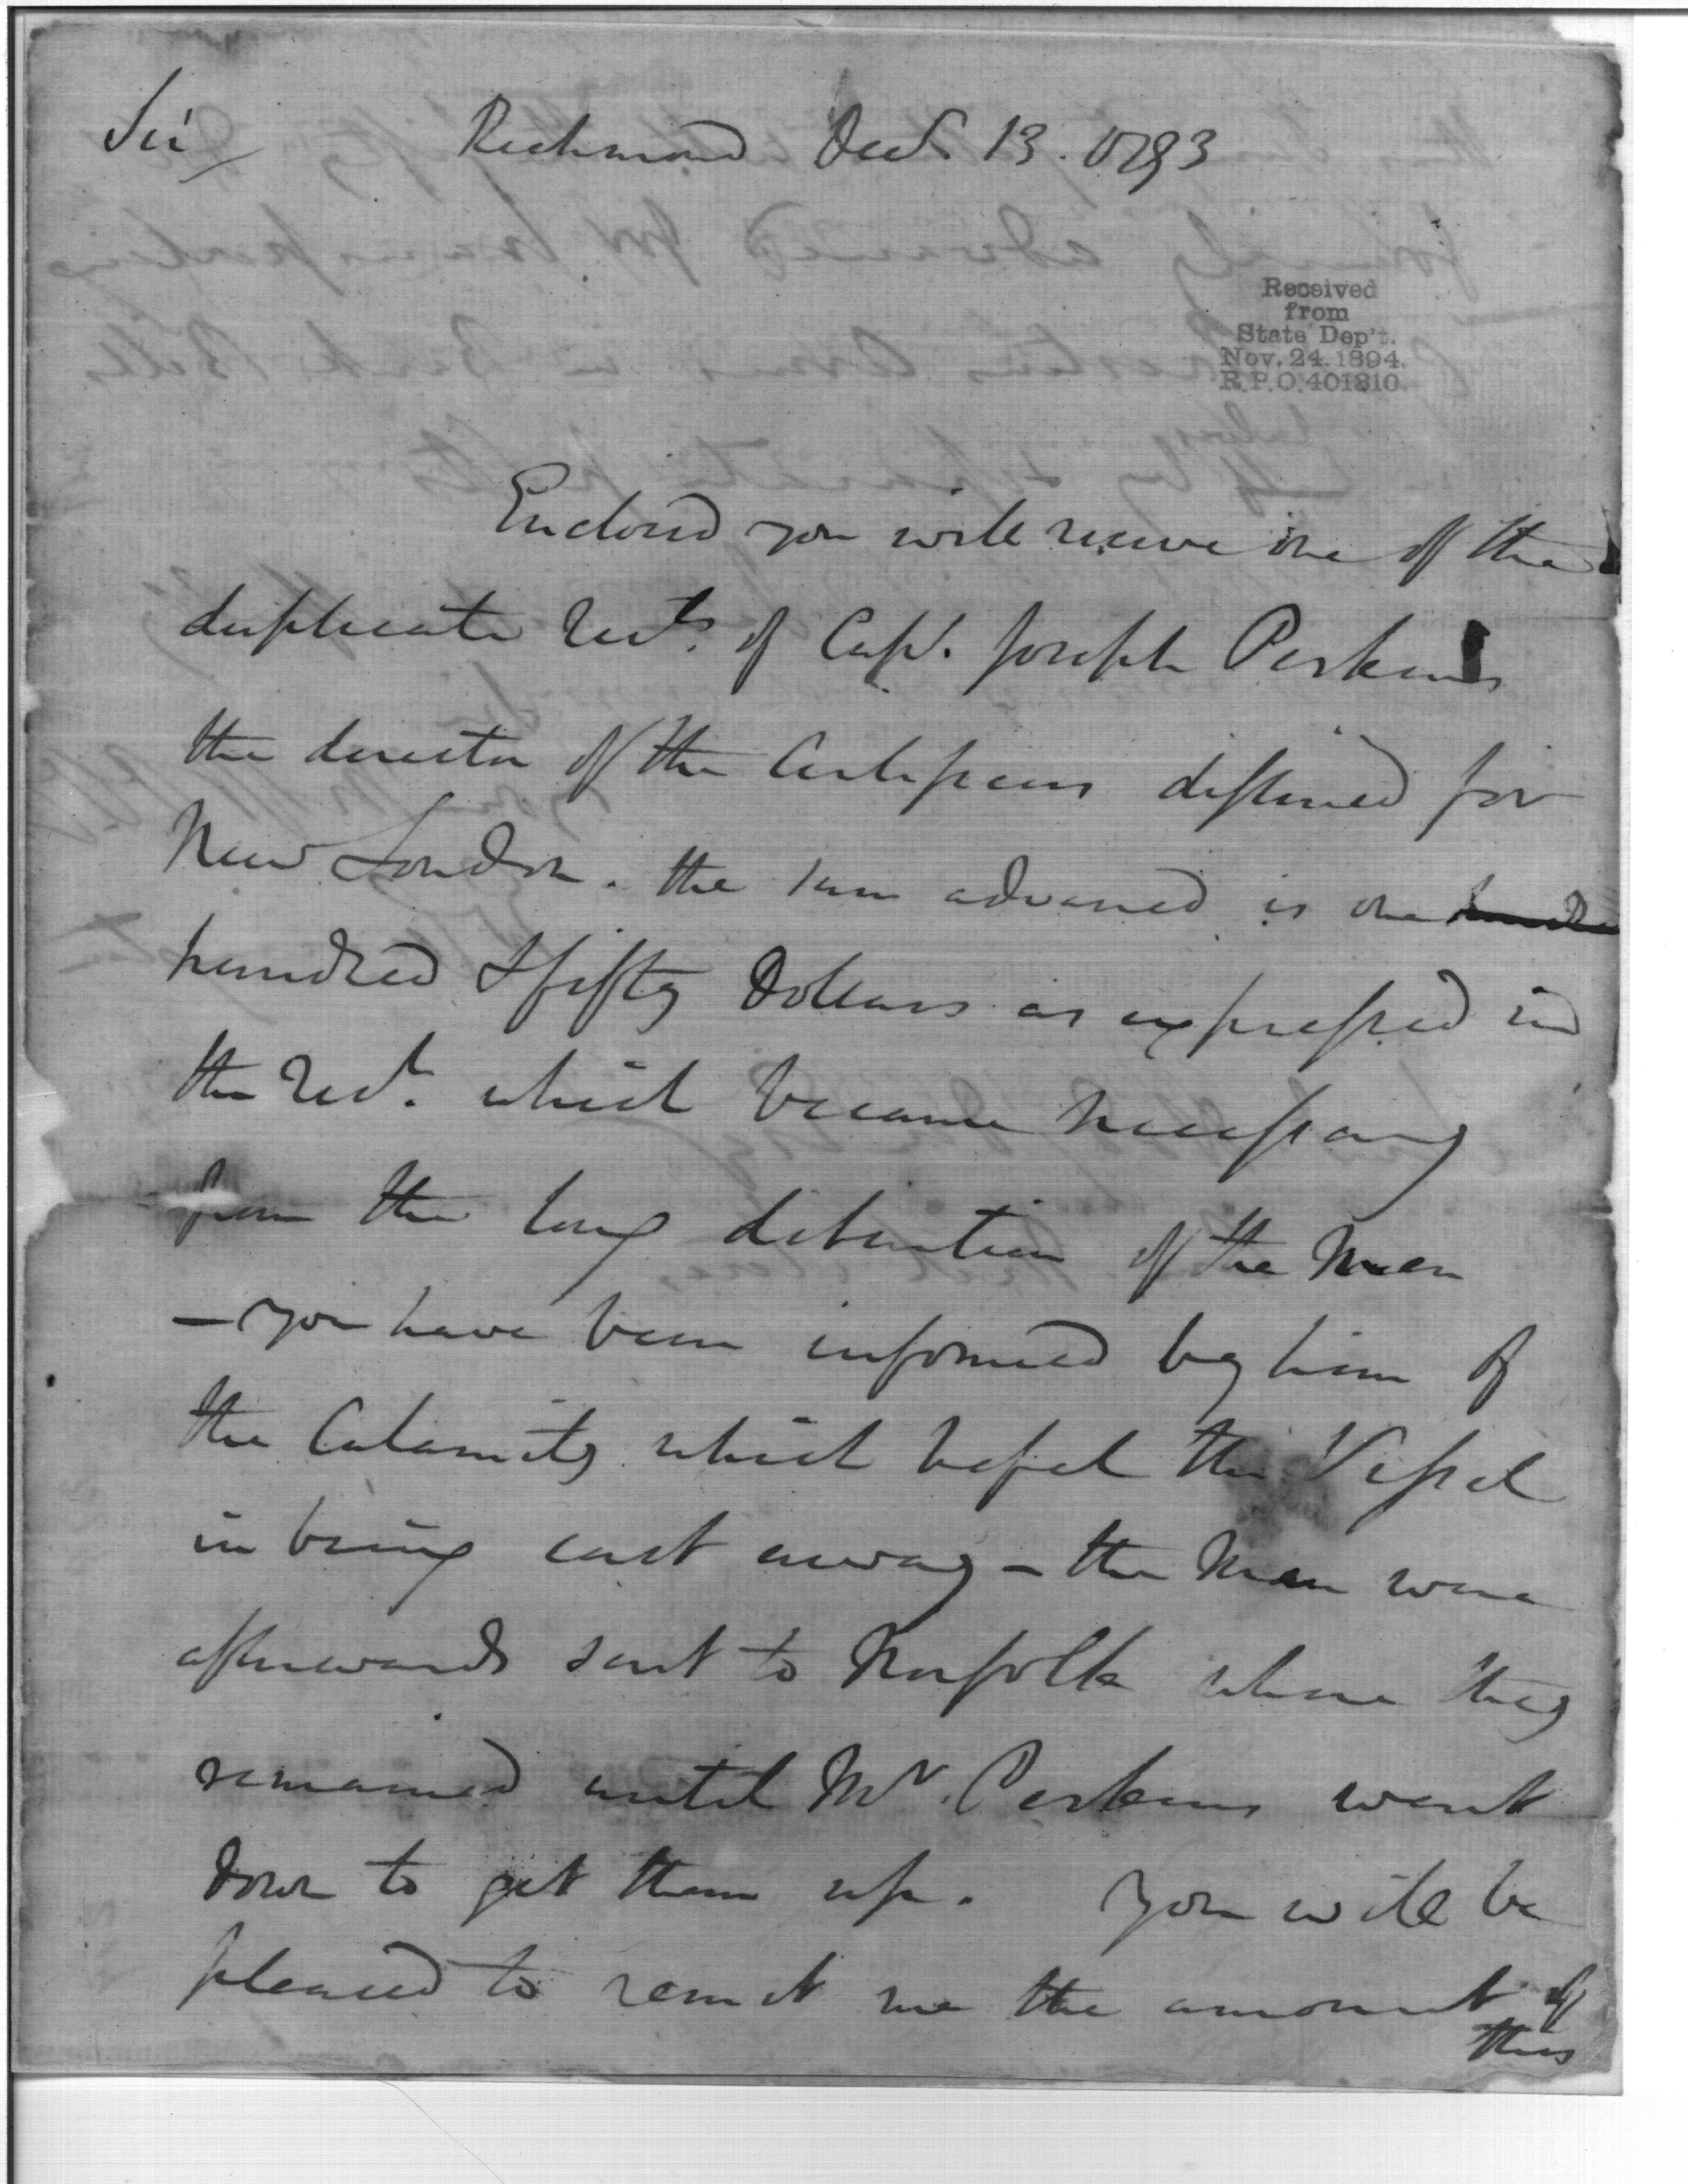 Sir/ Richmond Decr. 13. 1793
Received
from
State Dep't.
Nov. 24. 1894.
R.P.O. 401810.
Enclosed you will receive one of the
duplicate Rects. of Capt. Joseph Perkins
the director of the Artificers destined for
New London. the sum advanced is one
hundred & fifty Dollars as expressed in
the Rect. which became necessary
from the long detention of the Men
— you have been informed by him of
the Calamity which befel the Vessel
in being cast away – the Men were
afterwards sent to Norfolk where they
remained until Mr. Perkins went
down to get them up. You will be
pleased to remit me the amount of
this